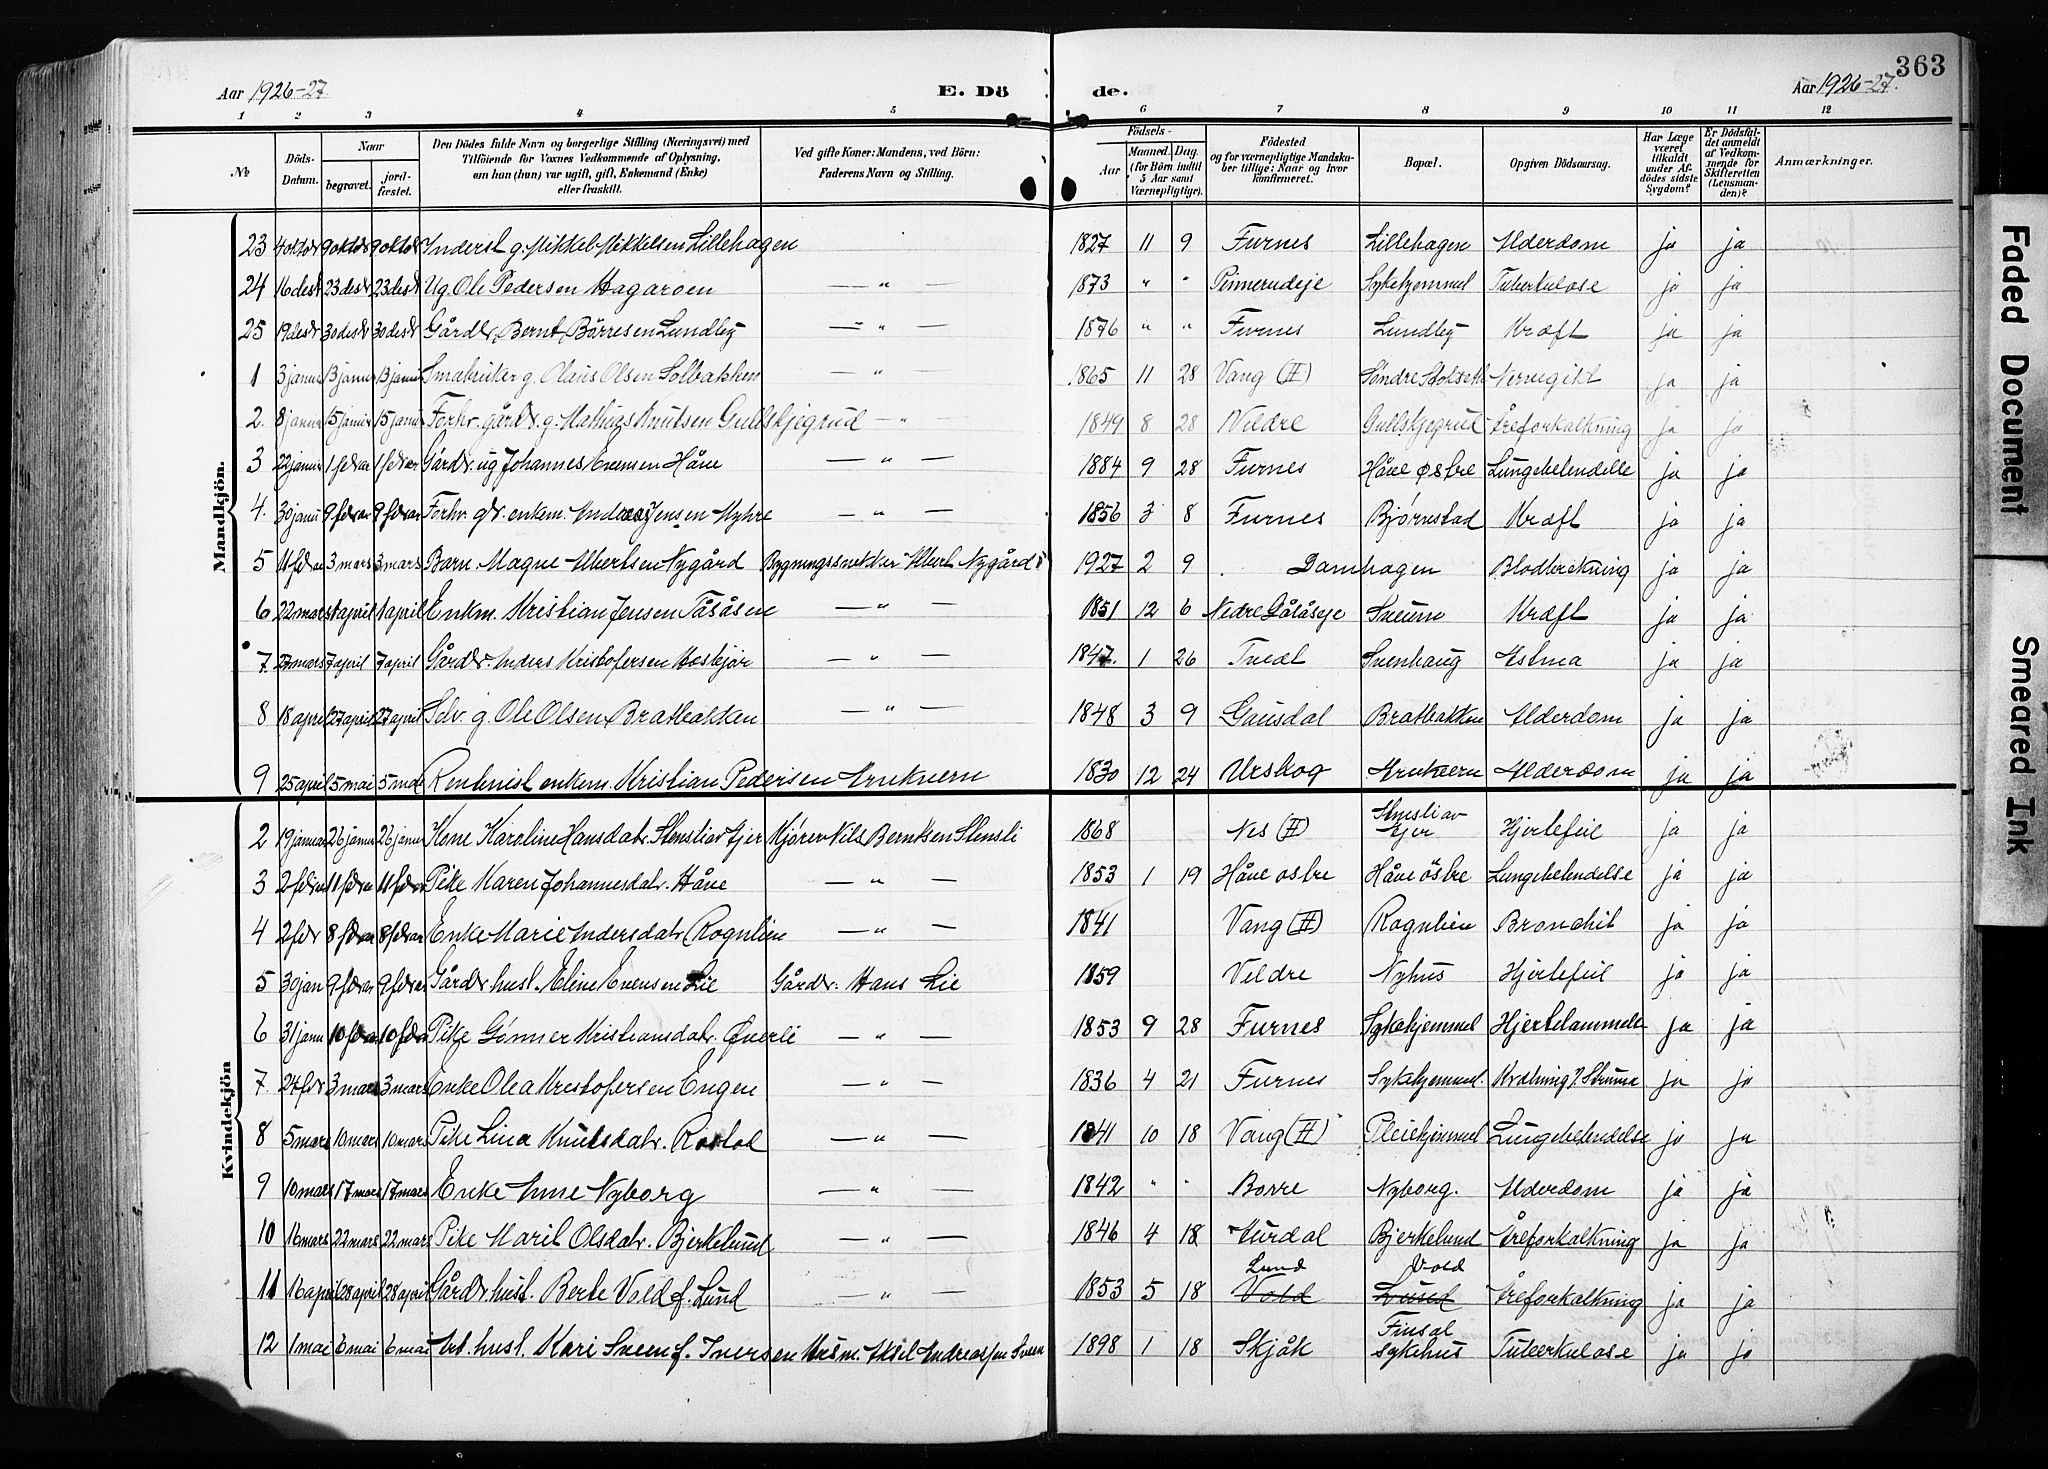 363
Aar 1926-27. E. Dö de. Aar 1926-27.
1 2 3 4 5 6 7 8 9 10 11 12
No Döds-Datum. Naar begravet. jordfæstet. Den Dödes fulde Navn og borgerlige Stilling (Næringsvei) med Tilföiende for Voxnes Vedkommende af Oplysning, om han (hun) var ugift, gift, Enkemand (Enke) eller fraskilt. Ved gifte Koner: Mandens, ved Börn: Faderens Navn og Stilling. Födsels- Aar Maaned. Dag. (for Börn indtil 5 Aar samt Værnepligtige). Födested og for værnepligtige Mandskaber tillige: Naar og hvor konfirmeret. Bopæl. Opgiven Dödsaarsag. Har Læge været tilkaldt under Afdödes sidste Sygdom? Er Dödsfaldet anmeldt af Vedkommende for Skifteretten (Lensmanden)? Anmærkninger.
Mandkjön.
23 4 oktbr 9 oktbr 9 oktbr Inderst g. Mikkel Mikkelsen Lillehagen 1827 11 9 Furnes Lillehagen Alderdom ja ja
24 16 desbr 23 desbr 23 desbr Ug. Ole Pedersen Hagaroen — " — 1873 " " Pinnerudeje Sykehjemmet Tuberkulose ja ja
25 19 desbr 30 desbr 30 desbr Gårdbr. Bernt Börresen Lundby — " — 1876 " " Furnes Lundby Kræft ja ja
1 3 januar 13 januar 13 januar Småbruker g. Olaus Olsen Solbakken — " — 1865 11 28 Vang (H) Söndre Stokseth Nervegikt ja ja
2. 8 januar 15 januar 15 januar Forhv. gårdbr. g. Mathias Knutsen Gullskjegrud — " — 1849 8 28 Veldre Gullskjegrud Åreforkalkning ja ja
3 22 januar 1 febrar 1 febrar Gårdbr. ug Johannes Evensen Håve — " — 1884 9 28 Furnes Håve østre Lungebetendelse ja ja
4. 30 janu 9 febrar 9 febrar Forhv. gbr. enkem. Andreas Jensen Myhre — " — 1856 3 8 Furnes Bjørnstad Kræft ja ja
5 11 febrar 3 mars 3 mars Barn. Magne Albertsen Nygård Bygningssnekker Albert Nygård 1927 2 9 Damhagen Blodbrekning ja ja
6 22 mars 1 april 1 april Enkm. Kristian Jensen Tåsåsen — " — 1851 12 6 Nedre Gålåseje Sveum Kræft ja ja
7 27 mars 7 april 7 april Gårdbr. Anders Kristofersen Hosbjör — " — 1847. 1 26 Tvedt Svenhaug Astma ja ja
8 18 april 27 april 27 april Selv. g. Ole Olsen Bratbakken — " — 1848 3 9 Gausdal Bratbakken Alderdom ja ja
9 25 april 5 mai 5 mai Rentenist enkem. Kristian Pedersen Arnkvern 1830 12 24 Urskog Arnkvern Alderdom ja ja
Kvindekjön
2 19 januar 26 januar 26 januar Kone Karoline Hansdatr. Stensliav Ejer Kjörer Nils Berntsen Stensli 1868 Nes (H) Stensliav Ejer Hjertefeil ja ja
3 2 febrar 11 febrar 11 febrar Pike Maren Johannesdatr. Håve — " — 1853 1 19 Håve østre Håve östre Lungebetendelse ja ja
4 2 febr 8 febrar 8 febrar Enke Marie Andersdatr. Rognlien — " — 1841 Vang (H) Rognlien Bronchit ja ja
5 30 jan 9 febrar 9 febrar Gårdbr. hust. Eline Evensen Lie Gårdbr. Hans Lie 1859 Veldre Nyhus Hjertefeil ja ja
6 31 janu 10 febrar 10 febrar Pike Gønner Kristiansdatr. Øverli — " — 1853 9 28 Furnes Sykehjemmet Hjertelammelse ja ja
7 24 febr 3 mars 3 mars Enke Olea Kristofersen Engen — " — 1836 4 21 Furnes Sykehjemmet. Kvælning. Struma ja ja
8 5 mars 10 mars 10 mars Pike Lina Knutsdatr. Rostad — " — 1841 10 18 Vang (H) Pleiehjemmet Lungebetendelse ja ja
9 10 mars 17 mars 17 mars Enke Anne Nyborg — " — 1842 " " Borre Nyborg. Alderdom ja ja
10 16 mars 22 mars 22 mars Pike Marit Olsdatr. Bjerkelund — " — 1846 4 18 Hurdal Bjerkelund Åreforkalkning ja ja
11 16 april 28 april 28 april Gårdbr. hust. Berte Vold f. Lund — " — 1853 5 18 Lund Vold Vold Lund Åreforkalkning ja ja
12 1 mai 6 mai 6 mai Arb. hust. Kari Sveen f. Iversen Husm. Aksel Andreassen Sveen 1898 1 18 Skjåk Finsal sykehus Tuberkulose ja ja
Faded Document
Smeared Ink